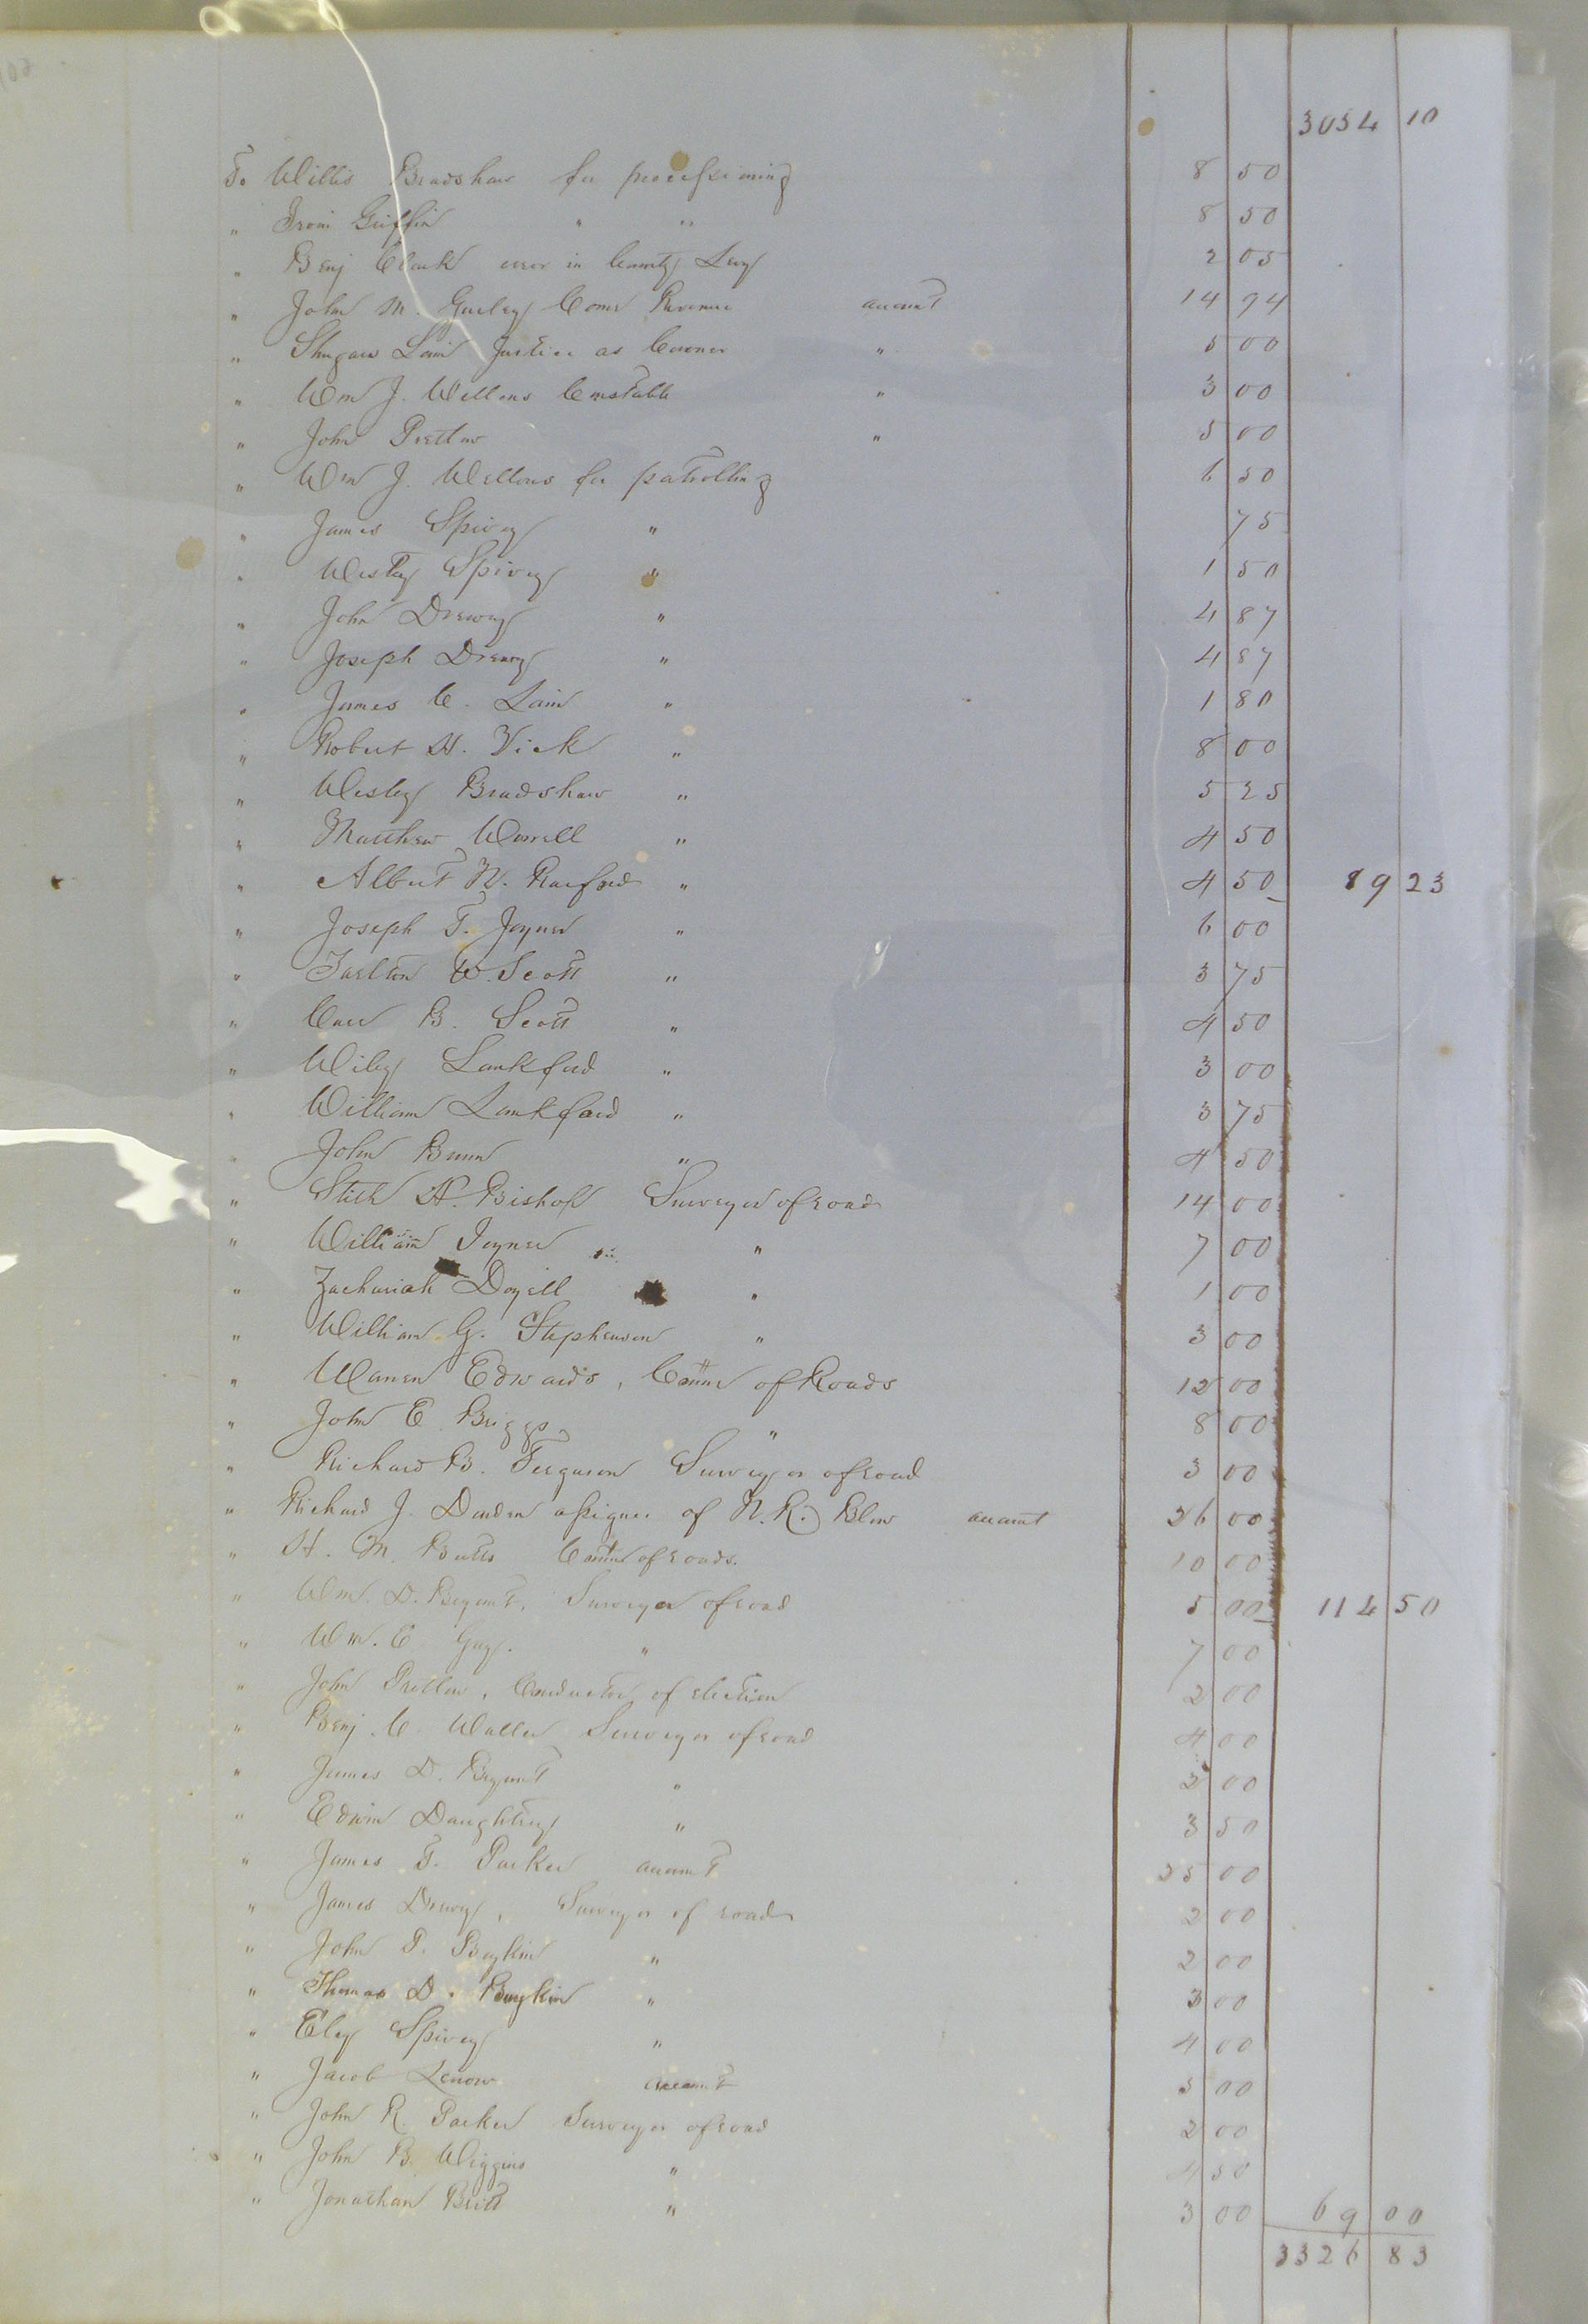 3054 10
To Willis Bradshaw for processioning 8 50
" Irvin Griffin " " 8 50
" Benj Clark error in County Levy 2 05
" John M. Gurley Comr Revenue account 14 94
" Shugars Lain Justice as Coroner " 5 00
" Wm J. Wellons Constable " 3 00
" John Pretlow " 5 00
" Wm J. Wellons for patrolling 6 50
" James Spivey " 75
" Wesley Spivey " 1 50
" John Drewry " 4 87
" Joseph Drewry " 4 87
" James C. Lain " 1 80
" Robert H. Vick " 8 00
" Wesley Bradshaw " 5 25
" Matthew Worrell " 4 50
" Albert N. Raiford " 4 50 89 23
" Joseph T. Joyner " 6 00
" Tarlton W. Scott " 3 75
" Carr B. Scott " 4 50
" Wiley Lankford " 3 00
" William Lankford " 3 75
" John Bunn " 4 50
" Stith H. Bishop Surveyor of road 14 00
" William Joyner " 7 00
" Zachariah Doyell " 1 00
" William G. Stephenson " 3 00
" Warren Edwards, Comr of Roads 12 00
" John E. Briggs " 8 00
" Richard B. Ferguson Surveyor of road 3 00
" Richard J. Darden assignee of N. R. Blow account 26 00
" H. M. Butts Comr of roads. 10 00
" Wm. D. Bryant, Surveyor of road 5 00 114 50
" Wm. E. Guy. " 7 00
" John Pretlow, Conductor of election 2 00
" Benj. C. Waller Surveyor of road 4 00
" James D. Bryant " 2 00
" Edwin Daughtrey " 3 50
" James T. Parker account 25 00
" James Drewry, Surveyor of road 2 00
" John T. Boykin " 2 00
" Thomas D. Boykin " 3 00
" Eley Spivey " 4 00
" Jacob Lenow account 5 00
" John R. Parker Surveyor of road 2 00
" John B. Wiggins " 4 50
" Jonathan Britt " 3 00 69 00
3326 83